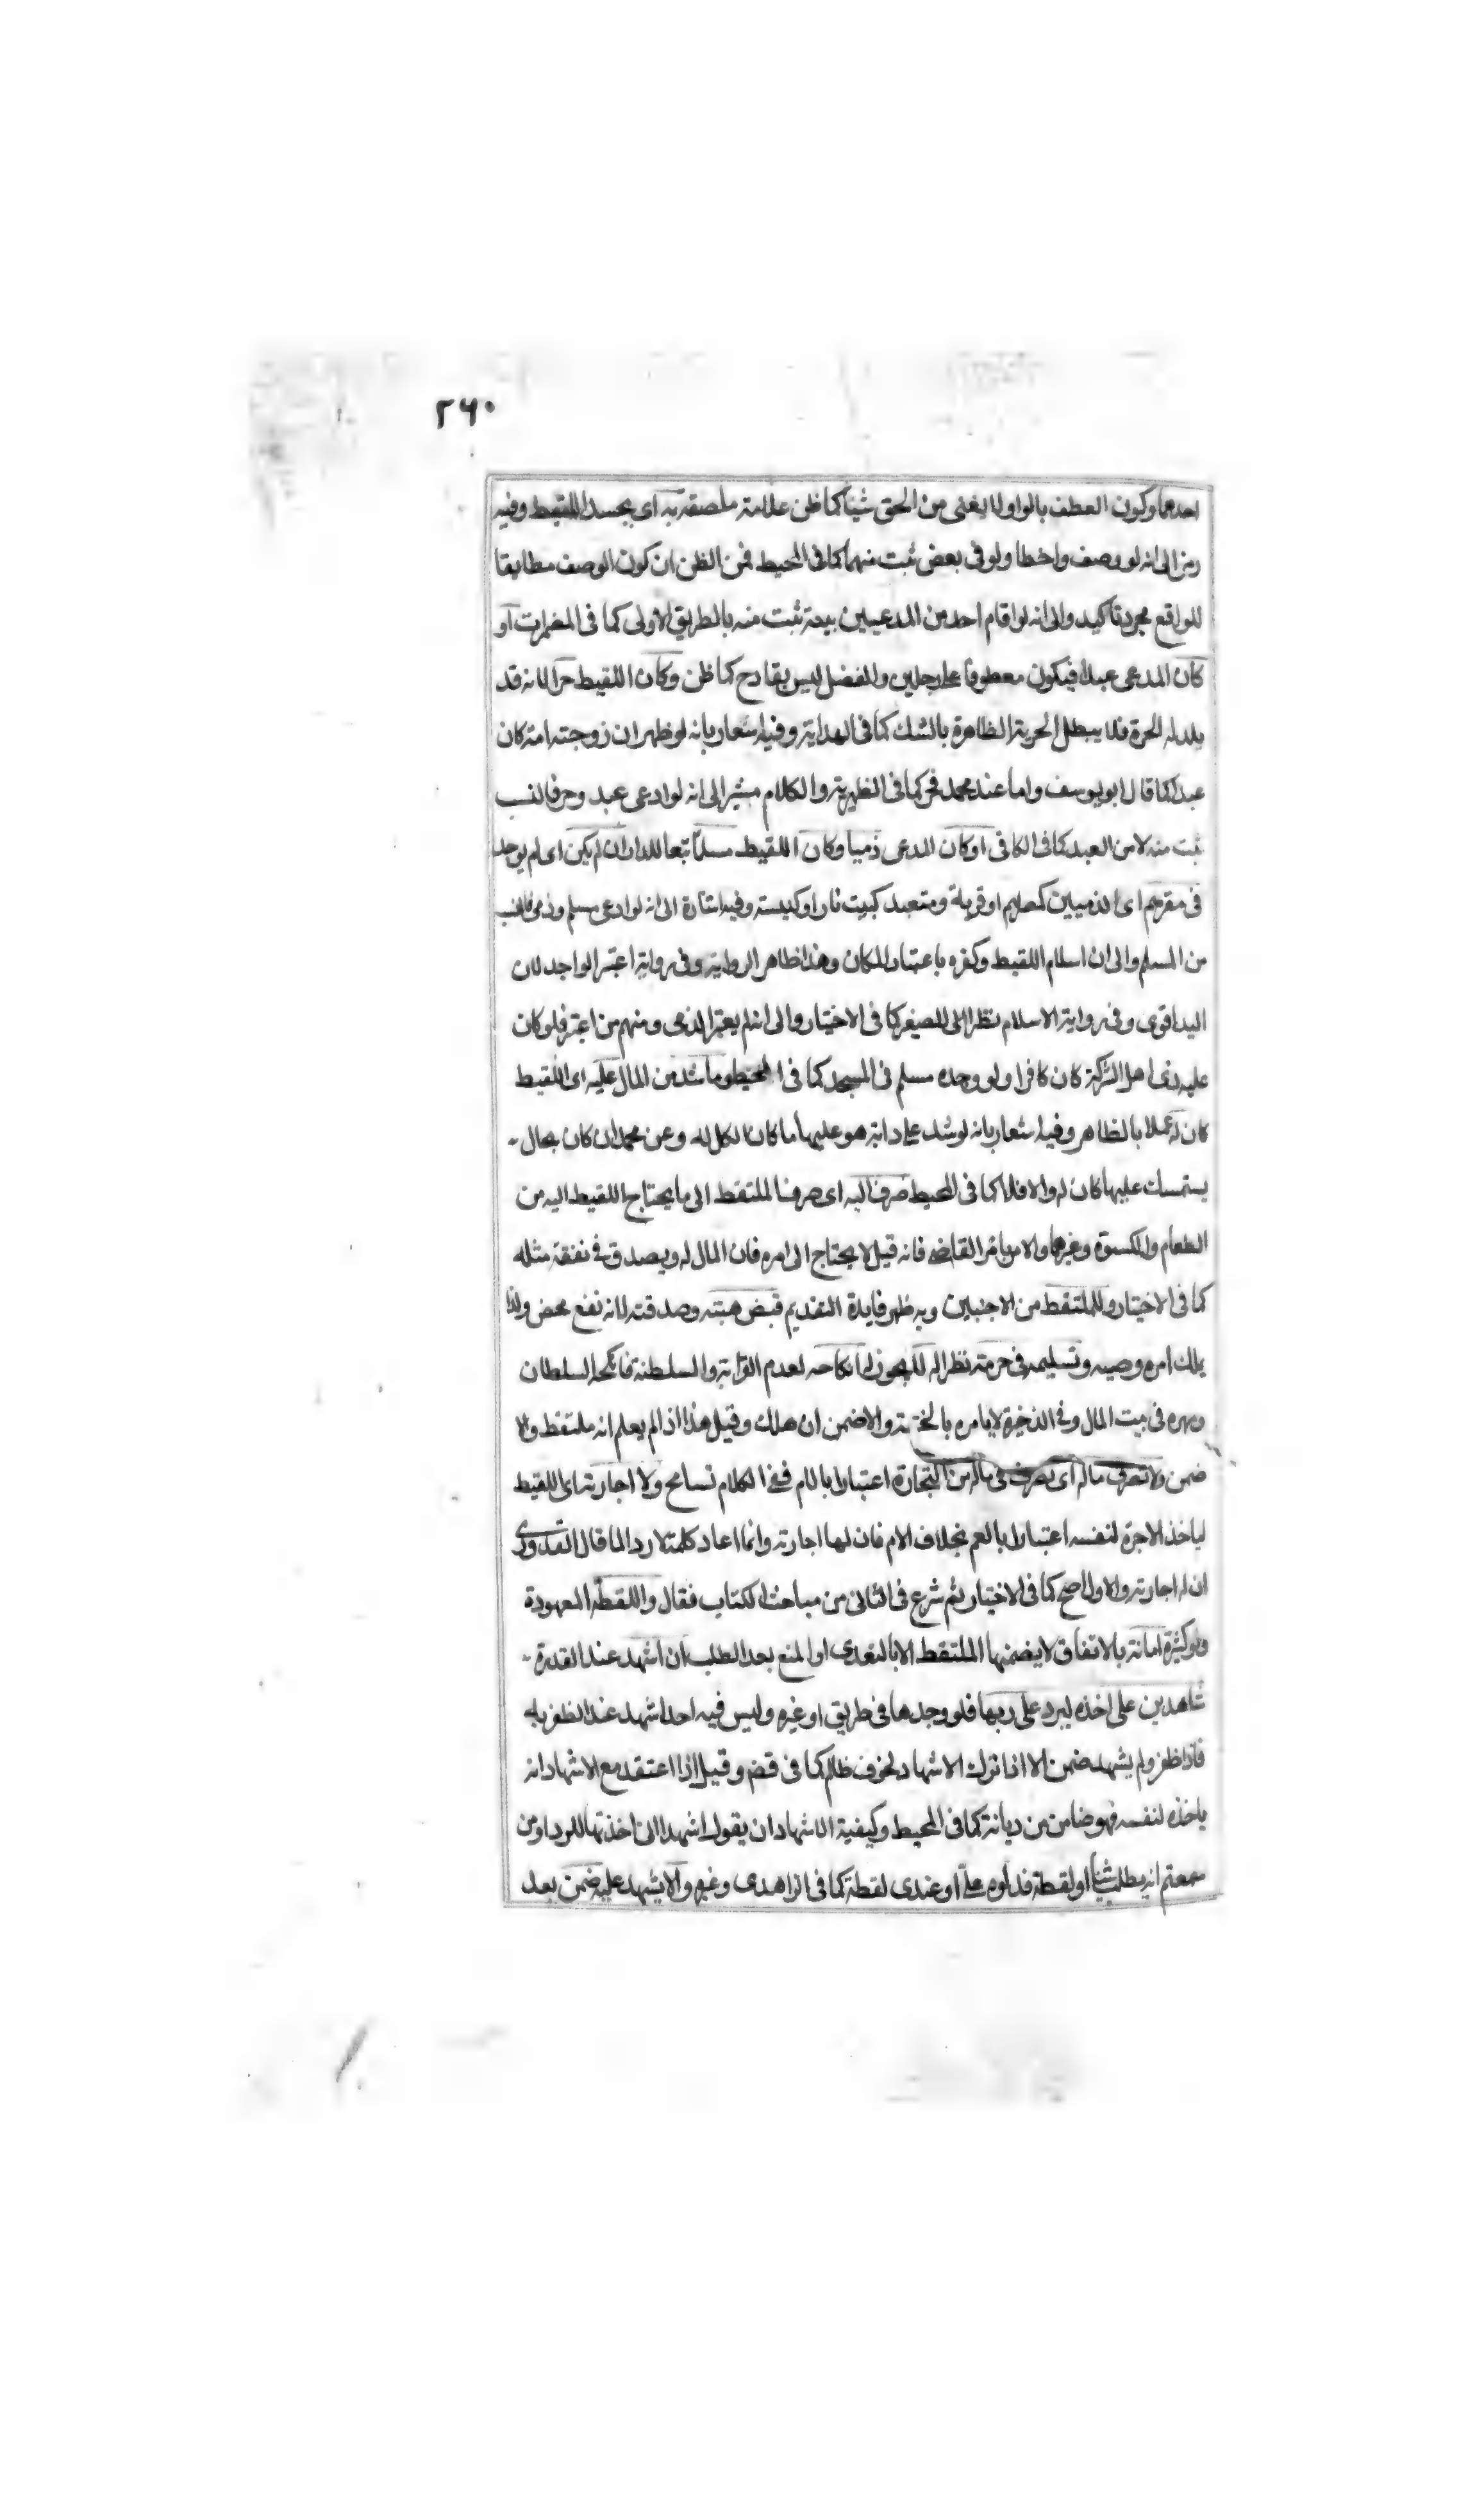 ٢٦٠
احدهما وكون العطف بالواو لا يغنى من الحق شيئا كما ظن علامة ملصقة به اى بجسد اللقيط وفيه
رمز الى انه لو وصف واخطا ولو فى بعض ثبت منهما كما فى المحيط فمن الظن ان كون الوصف مطابقا
للواقع مجرد تاكيد والى انه لو اقام احد من المدعيين بينة ثبت منه بالطريق الاولى كما فى المضمرات او
كان المدعى عبدا فيكون معطوفا على رجلين والفصل ليس بقادح كما ظن وكان اللقيط حرا لانه قد
يلد له الحرة فلا يبطل الحرية الظاهرة بالشك كما فى الهداية وفيه اشعار بانه لو ظهر ان زوجته امة كان
عبدا كما قال ابو يوسف واما عند محمد فحر كما فى الظهيرية والكلام مشير الى انه لو ادعى عبد وحر فالنسب
ثبت منه لا من العبد كما فى الكافى او كان المدعى ذميا وكان اللقيط مسلما تبعا للدار ان لم يكن اى لم يوجد
فى مقرهم اى الذميين كمصرهم او قرية ومتعبد كبيت نار او كنيسة وفيه اشارة الى انه لو ادعى مسلم وذمى فالنسب
من المسلم والى ان اسلام اللقيط وكفره باعتبار المكان وهذا ظاهر الرواية وفى رواية اعتبر الواجد لان
اليد اقوى وفى رواية الاسلام نظرا الى الصغير كما فى الاختيار والى انه لم يعتبر الزى ومنهم من اعتبر فلو كان
عليه زى اهل الشركة كان كافرا ولو وجده مسلم فى المسجد كما فى المحيط وما شد من المال عليه اى اللقيط
كان له عملا بالظاهر وفيه اشعار بانه لو شد على دابة هو عليها ما كان الكل له وعن محمد ان كان بحال
يستمسك عليها كان له والا فلا كما فى المحيط صرف اليه اى صرف الملتقط الى ما يحتاج اللقيط اليه من
الطعام والكسوة وغيرها والامر بامر القاضى فانه قيل لا يحتاج الى امره فان المال له ويصدق فى نفقة مثله
كما فى الاختيار وللملتقط من الاجنبيين وبه ظهر فايدة التقديم قبض هبته وصدقته لانه نفع محض ولذا
يملك امره وصيه وتسليمه فى حرفة نظرا له لا يجوز له انكاحه لعدم القرابة والسلطنة فانكحه السلطان
ومهره فى بيت المال وفى الذخيرة لا يامره بالختنة والا ضمن ان هلك وقيل هذا اذا لم يعلم انه ملتقط والا
ضمن ولا تصرف ماله اى تصرف فى ماله من التجارة اعتبارا بالام ففى الكلام تسامح ولا اجارته اى اللقيط
لياخذ الاجرة لنفسه اعتبارا بالعم بخلاف الام فان لها اجارته وانما اعاد كلمة لا ردا لما قال القدورى
ان له اجارته والاول اصح كما فى الاختيار ثم شرع فى الثانى من مباحث الكتاب فقال واللقطة المعهودة
ولو كثيرة امانة بالاتفاق لا يضمنها الملتقط الا بالتعدى او المنع بعد الطلب ان اشهد عند القدرة
شاهدين على اخذه ليرد على ربها فلو وجدها فى طريق او غيره وليس فيه احد اشهد عند الظفر به
فاذا ظفر ولم يشهد ضمن الا اذا ترك الاشهاد لخوف ظالم كما فى قض وقيل اذا اعتقد مع الاشهاد انه
ياخذه لنفسه فهو ضامن من ديانة كما فى المحيط وكيفية الاشهاد ان يقول اشهدا انى اخذتها للرد او من
سمعتم انه يطلب شيئا او لقطة فدلوه على او عندى لقطة كما فى الزاهدى وغيره والا يشهد عليه ضمن بعد